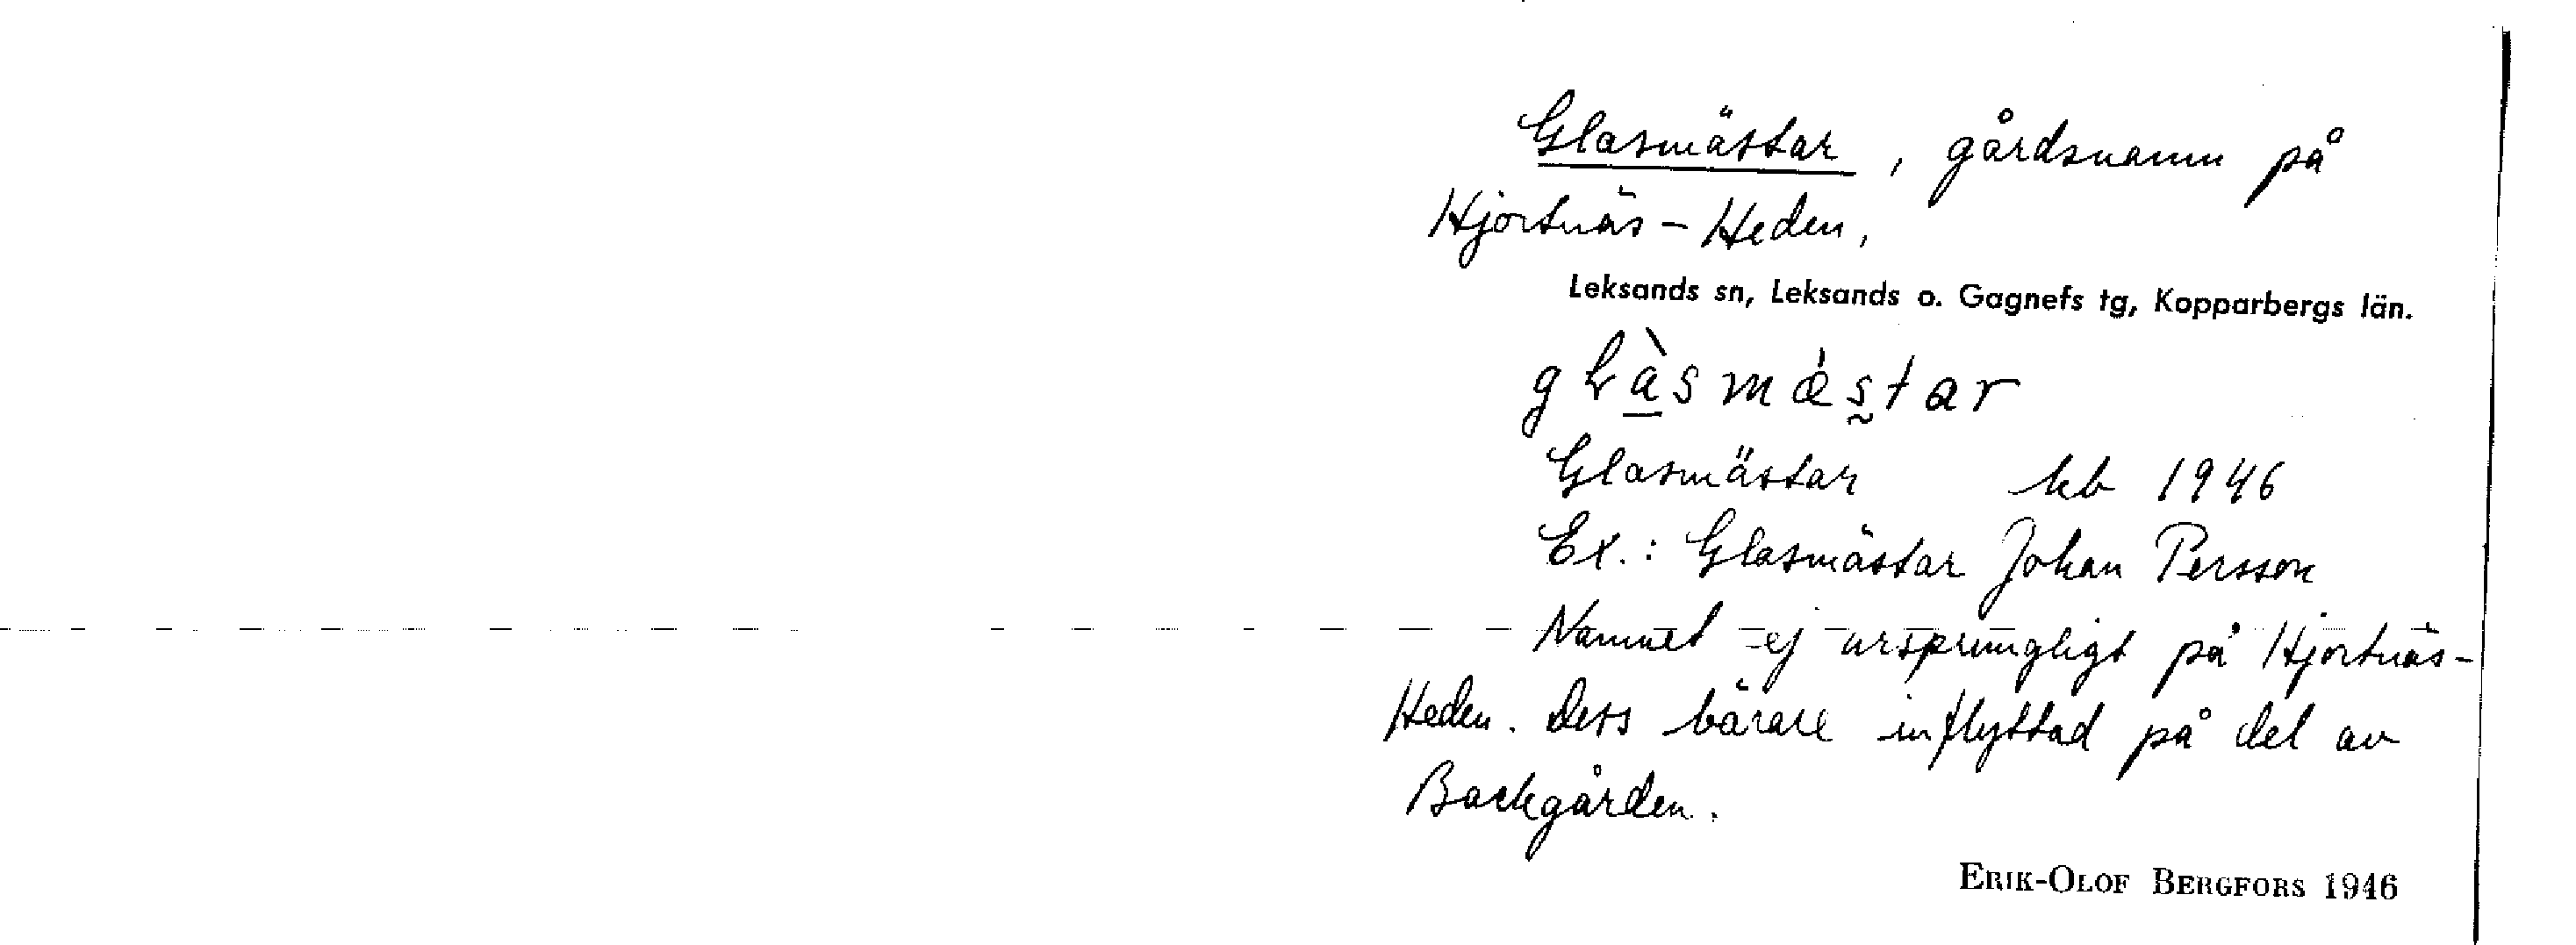 Glasmästar, gårdsnamn på
Hjortnäs-Heden,
Leksands sn, Leksands o. Gagnefs tg, Kopparbergs län.
Glasmästar kb 1946
Ex.: Glasmästar Johan Persson
Namnet ej ursprungligt på Hjortnäs-
Heden. Dess bärare inflyttad på del av
Backgården.
ERIK-OLOF BERGFORS 1946